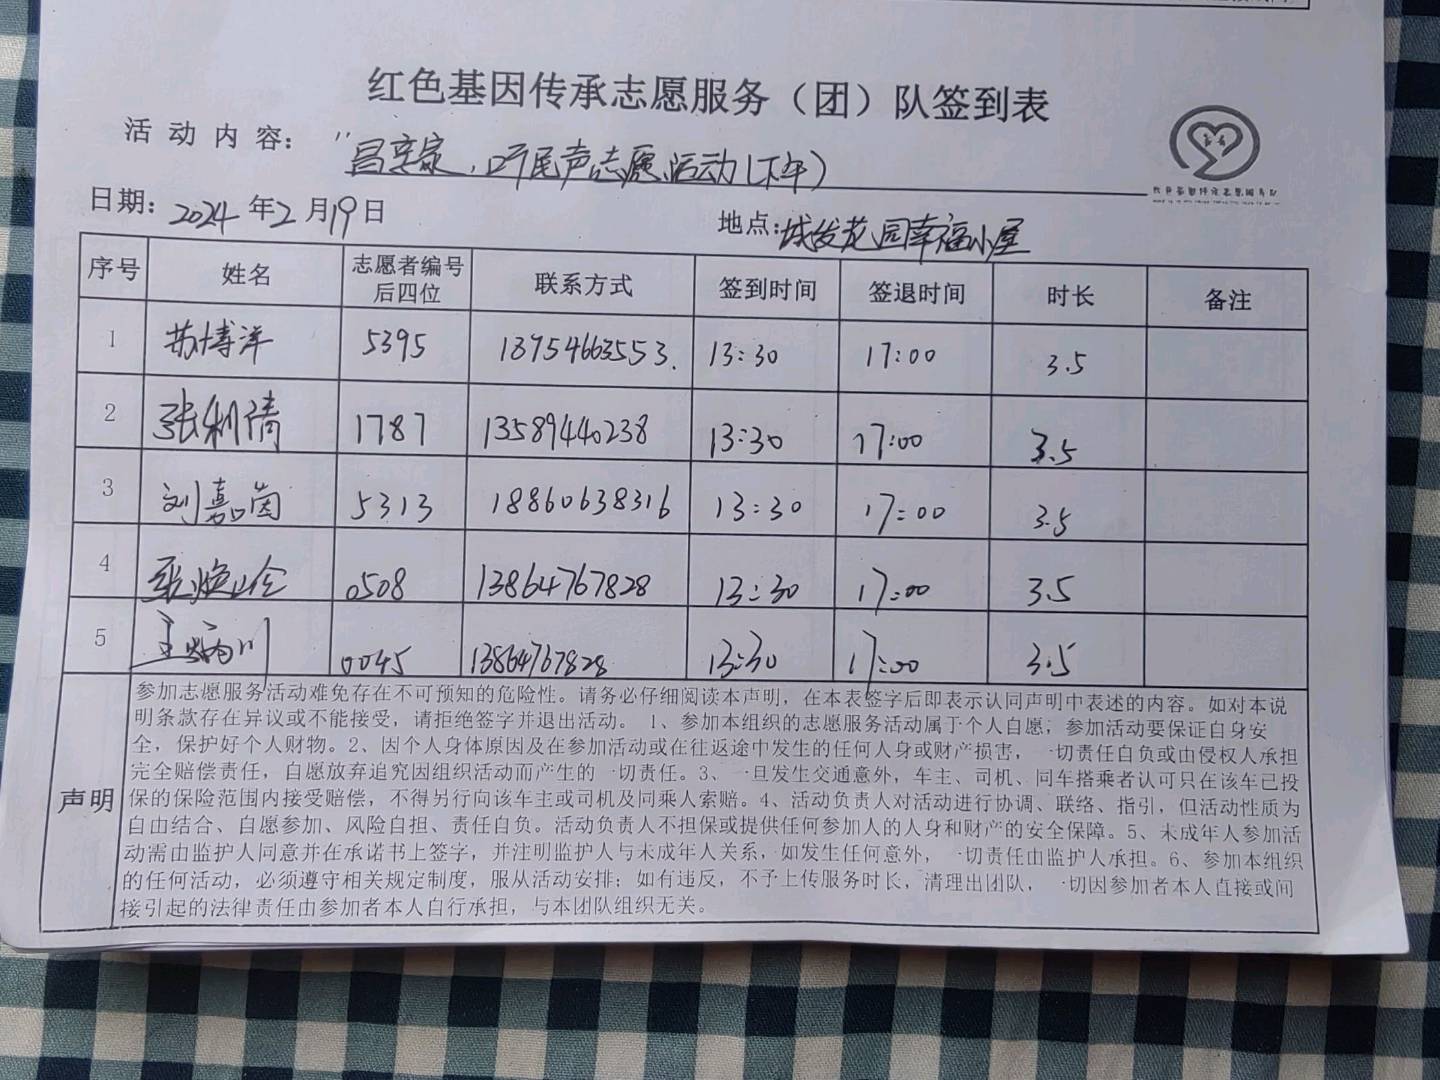 红色基因传承志愿服务（团）队签到表
活动内容："昌幸家，听尾声志愿活动(下午)
日期：2024年2月19日 地点：城发花园幸福小屋
序号 姓名 志愿者编号后四位 联系方式 签到时间 签退时间 时长 备注
1 苏博洋 5395 18954663553. 13:30 17:00 3.5
2 张利倩 1787 13589440238 13:30 17:00 3.5
3 刘嘉茵 5313 18860638316 13:30 17:00 3.5
4 0508 13864767828 13:30 17:00 3.5
5 0045 13864767828 13:30 17:00 3.5
声明
参加志愿服务活动难免存在不可预知的危险性。请务必仔细阅读本声明，在本表签字后即表示认同声明中表述的内容。如对本说
明条款存在异议或不能接受，请拒绝签字并退出活动。 1、参加本组织的志愿服务活动属于个人自愿，参加活动要保证自身安
全，保护好个人财物。2、因个人身体原因及在参加活动或在往返途中发生的任何人身或财产损害，一切责任自负或由侵权人承担
完全赔偿责任，自愿放弃追究因组织活动而产生的一切责任。3、一旦发生交通意外，车主、司机、同车搭乘者认可只在该车已投
保的保险范围内接受赔偿，不得另行向该车主或司机及同乘人索赔。4、活动负责人对活动进行协调、联络、指引，但活动性质为
自由结合、自愿参加、风险自担、责任自负。活动负责人不担保或提供任何参加人的人身和财产的安全保障。5、未成年人参加活
动需由监护人同意并在承诺书上签字，并注明监护人与未成年人关系，如发生任何意外，一切责任由监护人承担。6、参加本组织
的任何活动，必须遵守相关规定制度，服从活动安排；如有违反，不予上传服务时长，清理出团队，一切因参加者本人直接或间
接引起的法律责任由参加者本人自行承担，与本团队组织无关。